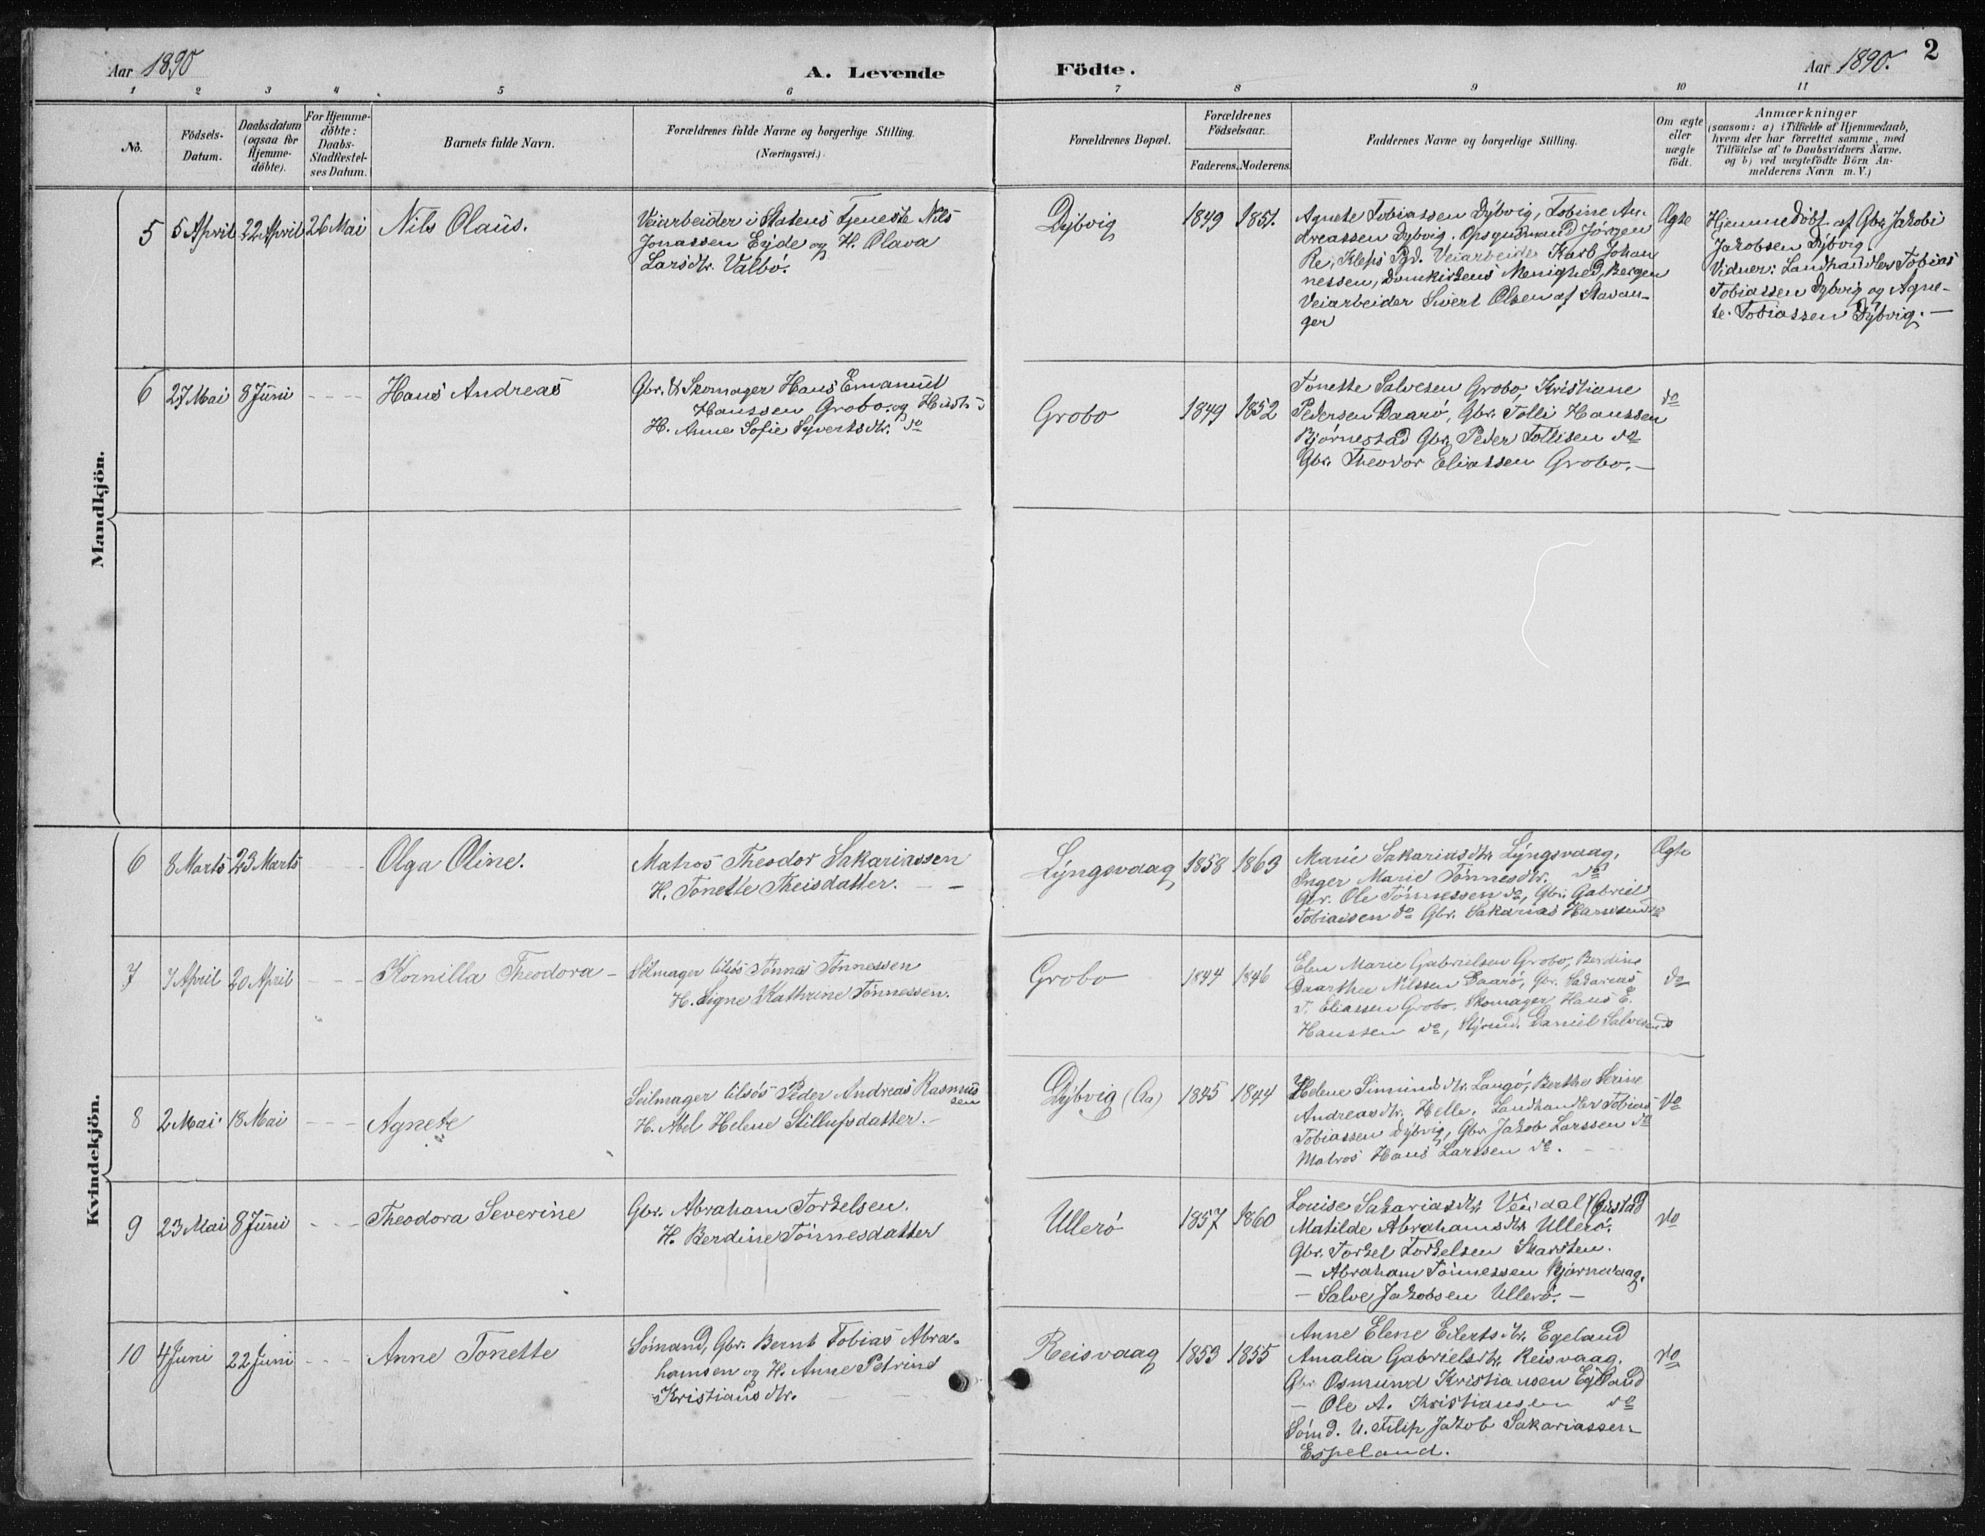 Aar 1890
A. Levende Födte.
Aar 1890.
2
1 2 3 4 5 6 7 8 9 10 11
No.
Födsels-
Datum.
Daabsdatum
(ogsaa for
Hjemme-
döbte).
For Hjemme-
döbte:
Daabs-
Stadfæstel-
ses Datum.
Barnets fulde Navn.
Forældrenes fulde Navne og borgerlige Stilling.
(Næringsvei.)
Forældrenes Bopæl.
Forældrenes
Födselsaar.
Faderens. Moderens.
Faddernes Navne og borgerlige Stilling.
Om ægte
eller
uægte
födt.
Anmærkninger
(saasom: a) i Tilfælde af Hjemmedaab,
hvem der har forrettet samme, med
Tilföielse af to Daabsvidners Navne,
og b) ved uægtefödte Börn An-
melderens Navn m. V.)
Mandkjön.
5 5 April 22 April 26 Mai Nils Olaus.
Veiarbeider i Statens Tjeneste Nils
Jonassen Eyde og H. Olava
Larsdtr. Valbö.
Dybvig 1849 1851.
Agnete Tobiassen Dybvig, Tobine An-
dreassen Dybvig. Opsynsmand Jörgen
Re, Kleps Pgd. Veiarbeider Karl Johan
nessen, Domkirkens Menighed, Bergen
Veiarbeider Sivert Olsen af Stavan-
ger
Ægte
Hjemmedöbt af Gbr. Jakob
Jakobsen Dybvig.
Vidner: Landhandler Tobias
Tobiassen Dybvig og Agne-
te Tobiassen Dybvig. —
6 27 Mai 8 Juni - - - - Hans Andreas
Gbr. & Skomager Hans Emanuel
Hanssen, Grobo, og Hustr:
H. Anne Sofie Syvertsdtr. do
Grobo 1849 1852
Tonette Salvesen Grobo, Kristiane
Pedersen Daarö, Gbr. Tolli Hanssen
Björnestad Gbr. Peder Tollisen do
Gbr. Theodor Eliassen Grobo. —
do
Kvindekjön.
6 8 Marts 23 Marts - - - Olga Oline.
Matros Theodor Sakariassen
H. Tonette Theisdatter. — —
Lyngsvaag 1858 1863
Marie Sakariasdtr. Lyngsvaag.
Inger Marie Tönnesdtr. do
Gbr. Ole Tönnessen do, Gbr. Gabriel
Tobiassen do Gbr. Sakarias Hanssen do
Ægte
7 7 April 20 April - - - Kornilla Theodora —
Seilmager Tönnes Tönnessen
H. Signe Kathrine Tönnessen.
Grobo 1844 1846
Elen Marie Gabrielsen Grobo, Berdine
Daarthea Nilssen Daarö, Gbr.
T. Eliassen Grobo. Skomager Hans E.
Hanssen do, Daniel Salvesen do
do
8 2 Mai 18 Mai - - - Agnete
Seilmager Peder Andreas Rasmus
sen
H. Abel Helene Stillufsdatter. —
Dybvig (Aa) 1845 1844
Helene Simundsdtr. Langö, Berthe Serine
Andreasdtr. Helle. Landhandler Tobias
Tobiassen Dybvig, Gbr. Jakob Larssen do
Matros Hans Larssen do.
do
9 23 Mai 8 Juni - - - Theodora Severine
Gbr. Abraham Torkelsen.
H. Berdine Tönnesdatter
Ullerö 1857 1860
Louise Sakariasdtr.
Matilde Abrahamsdtr. Ullerö.
Gbr. Torkel Torkelsen
— Abraham Tönnessen Bjørnevaag.
— Salve Jakobsen Ullerö. —
do
10 4 Juni 22 Juni - - - Anne Tonette
Sömand, Gbr. Bernt Tobias Abra-
hamsen og H. Anne Petrine
Kristiansdtr.
Reisvaag 1853 1855
Anne Elene Eilertsdtr. Egeland
Amalia Gabrielsdtr. Reisvaag.
Gbr Osmund Kristiansen Egeland
— Ole A. Kristiansen do
Sömd. U. Filip Jakob Sakariassen
Espeland.
do